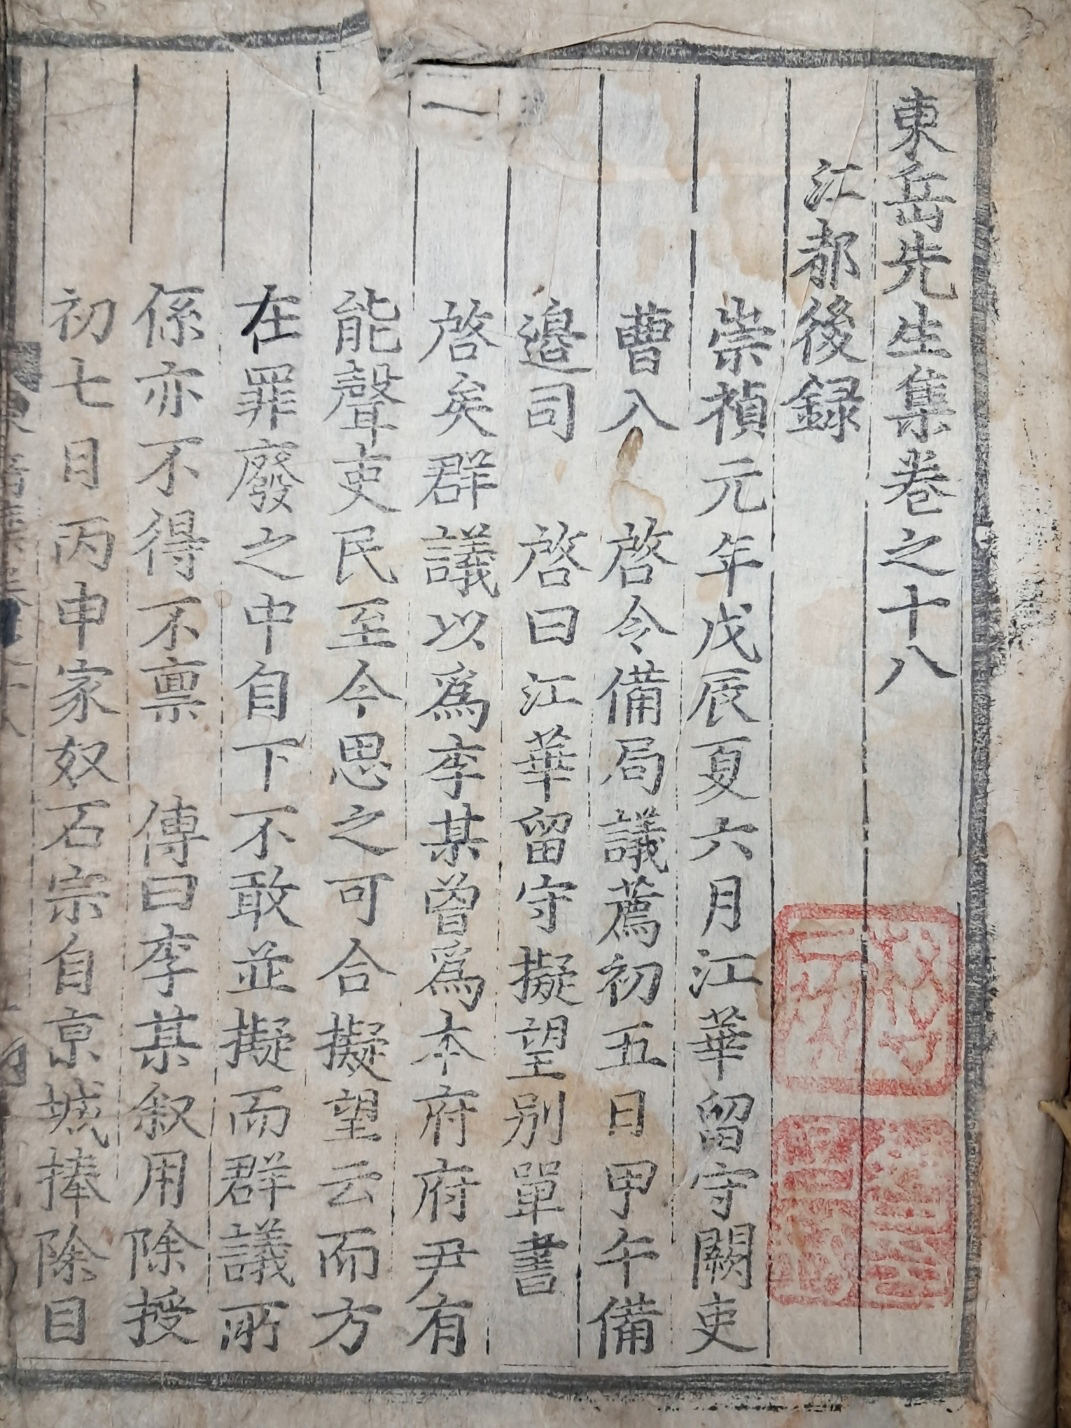 東岳先生集卷之十八
江都後録
崇禎元年戊辰夏六月江華留守闕吏
曹入 啓令備局議薦初五日甲午備
邉司 啓曰江華留守擬望别單書
啓矣群議以爲李某曾爲本府府尹有
能聲吏民至今思之可合擬望云而方
在罪廢之中自下不敢並擬而群議所
係亦不得不禀 傳曰李某叙用除授
初七日丙申家奴石宗自京城捧除目